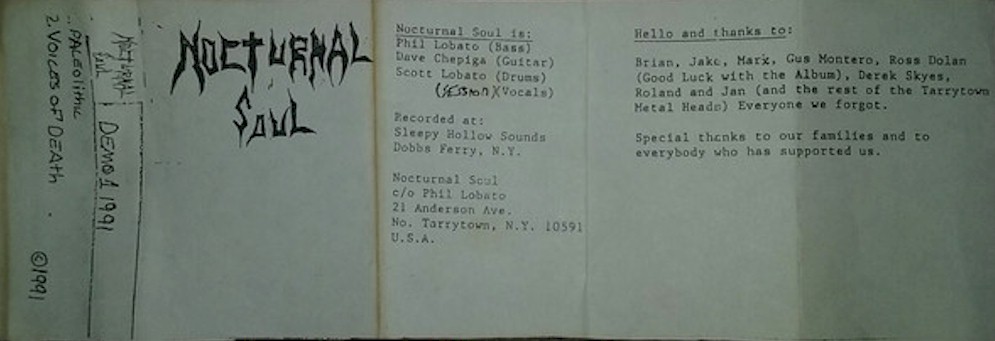 1. PALEOLITHIC
2. VOICES OF DEATH
©1991
NOCTURNAL
SOUL
DEMO 1 1991
NOCTURNAL
SOUL
Nocturnal Soul is:
Phil Lobato (Bass)
Dave Chepiga (Guitar)
Scott Lobato (Drums)
(SESSION)(Vocals)
Recorded at:
Sleepy Hollow Sounds
Dobbs Ferry, N.Y.
Nocturnal Soul
c/o Phil Lobato
21 Anderson Ave.
No. Tarrytown, N.Y. 10591
U.S.A.
Hello and thanks to:
Brian, Jake, Mark, Gus Montero, Ross Dolan
(Good Luck with the Album), Derek Skyes,
Roland and Jan (and the rest of the Tarrytown
Metal Heads) Everyone we forgot.
Special thanks to our families and to
everybody who has supported us.